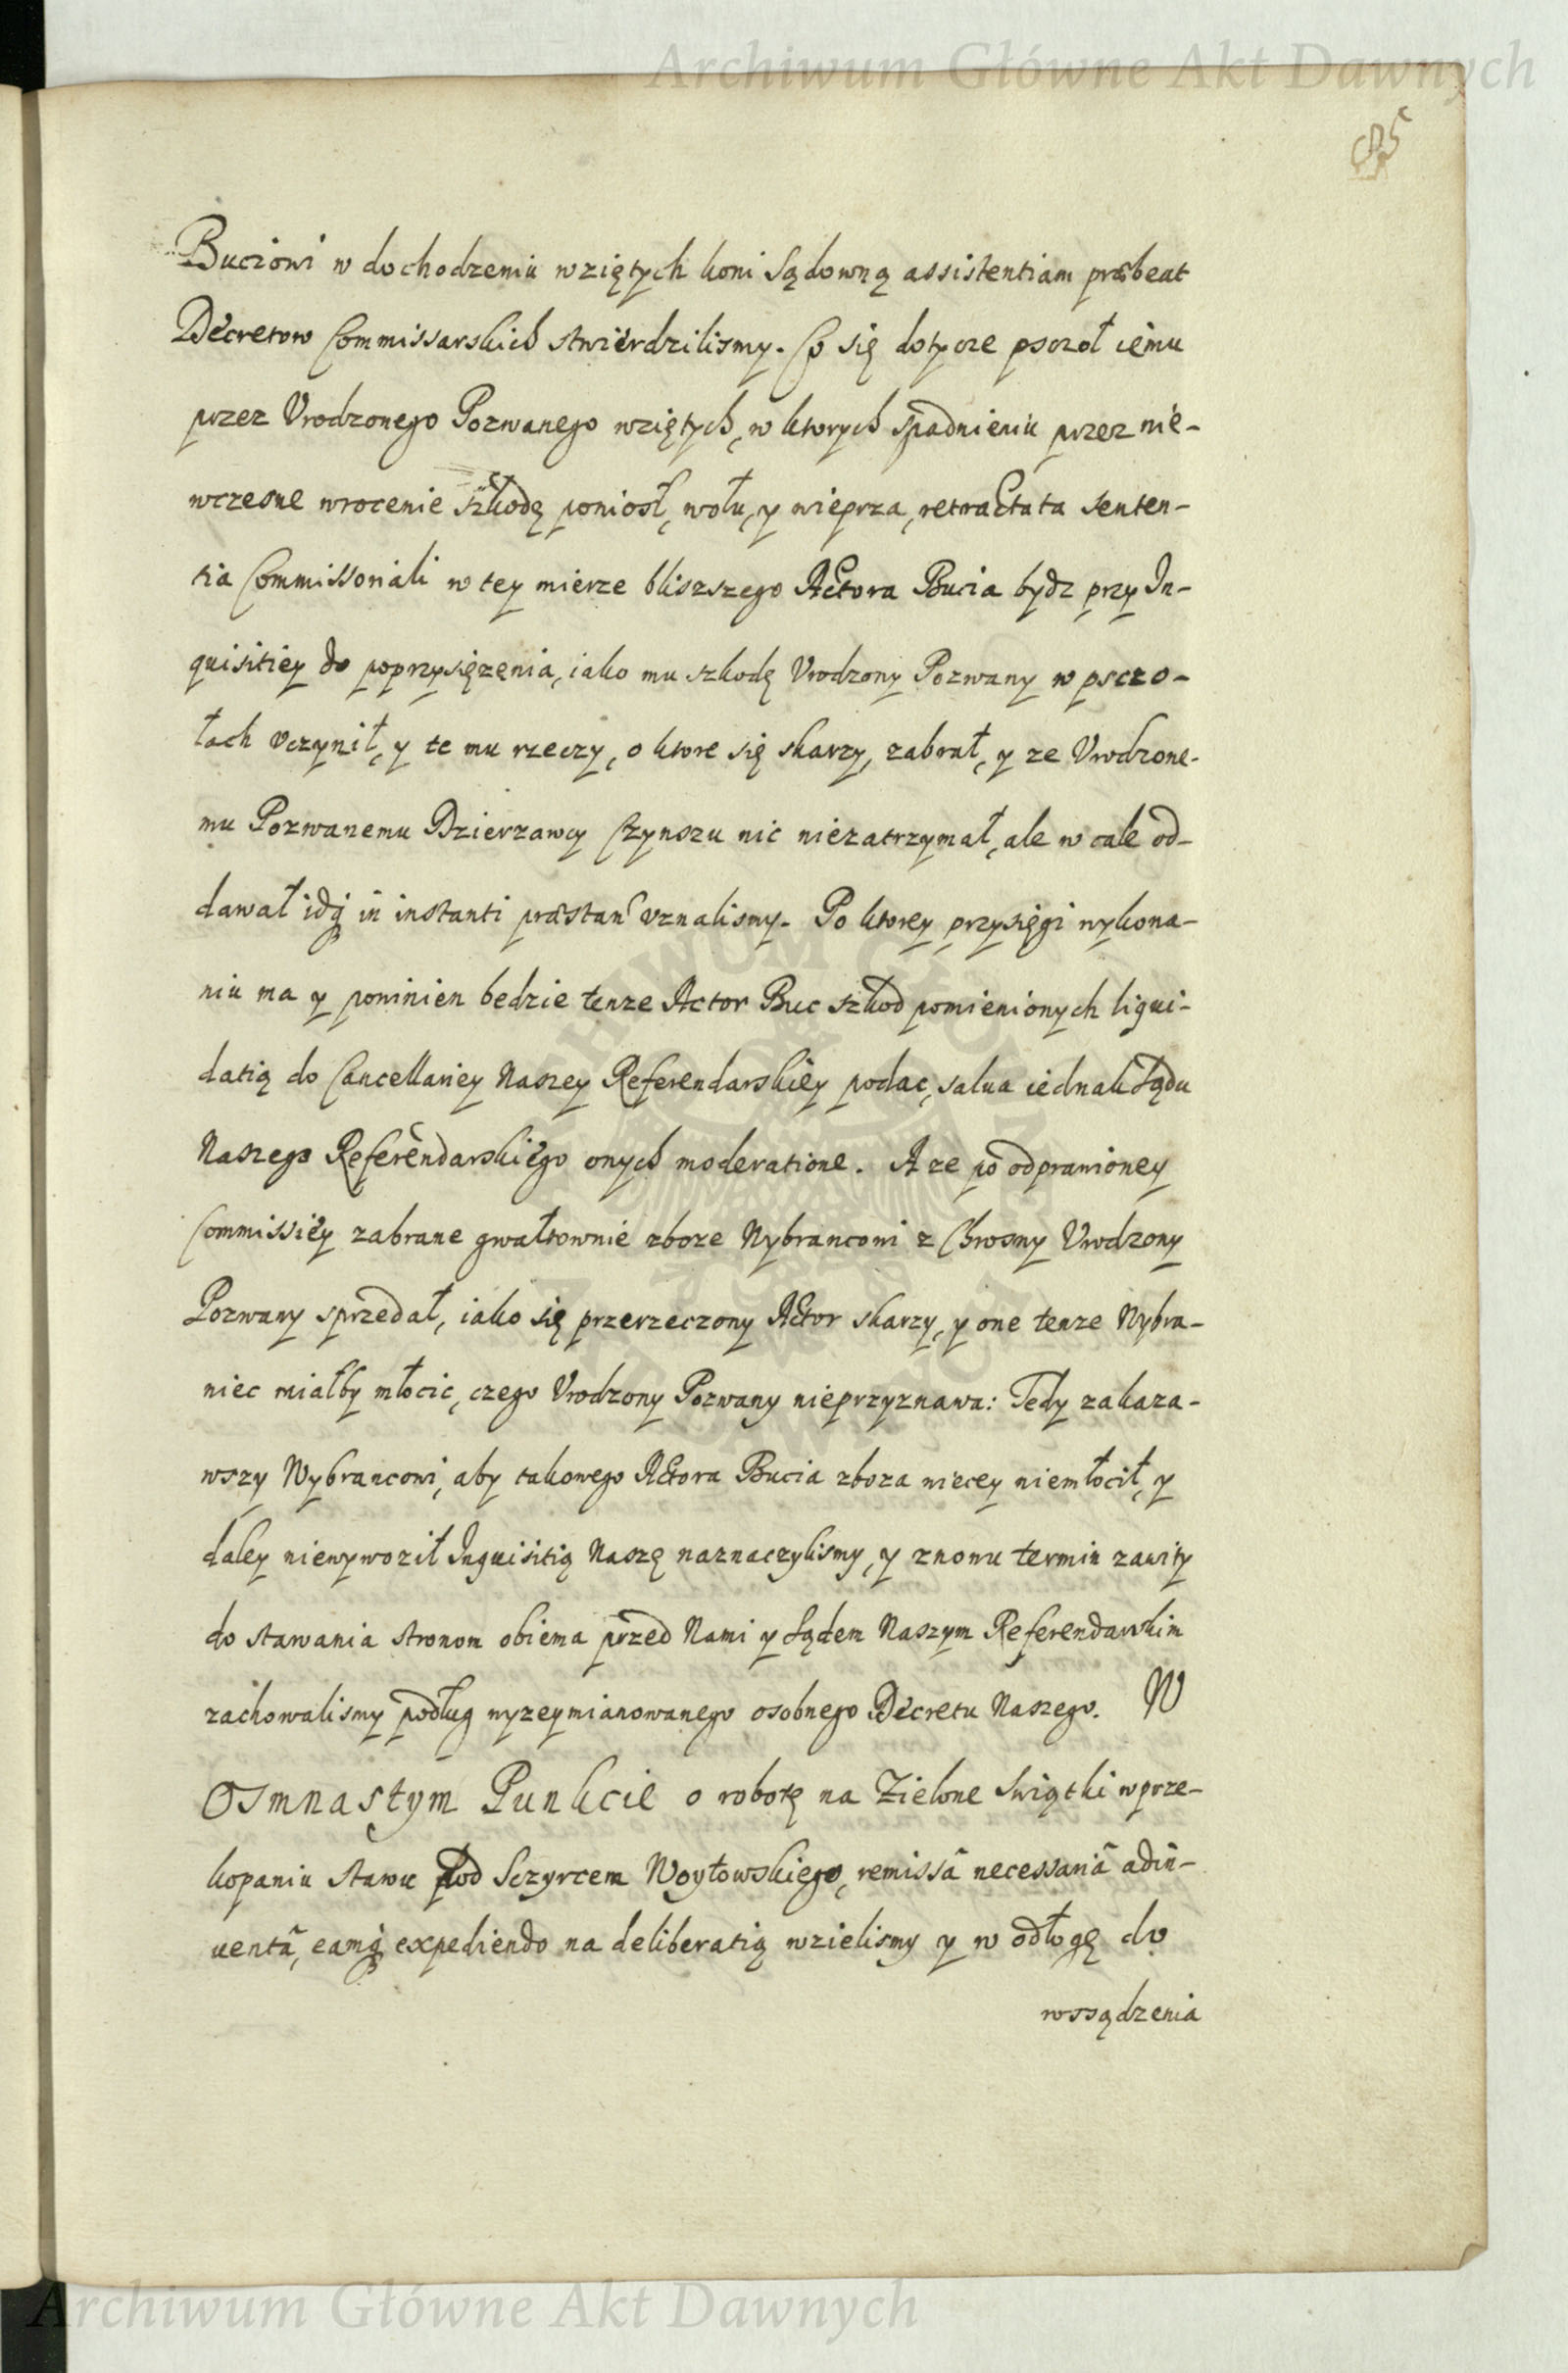 Archiwum Główne Akt Dawnych
85
Buciowi w dochodzeniu wziętych koni sądowną assistentiam præbeat
Decretow Commissarskich stwierdzilismy. Co się dotycze psczoł iemu
przez Vrodzonego Pozwanego wziętych, w ktorych spadnieniu przez nie-
wczesne wrocenie szkodę poniosł, wołu, y wieprza, retractata senten-
tia Commissoriali w tey mierze bliszszego Actora Bucia bydz przy In-
quisitiey do poprzysięzenia, iako mu szkodę Vrodzony Pozwany w psczo-
łach vczynił, y te mu rzeczy, o ktore się skarzy, zabrał, y ze Vrodzone-
mu Pozwanemu Dzierzawcy Czynszu nic niezatrzymał, ale w cale od-
dawał idq́ in instanti præstan̄ vznalismy. Po ktorey przysięgi wykona-
niu ma y powinien bedzie tenze Actor Buc szkod pomienionych liqui-
datią do Cancellariey Naszey Referendarskiey podac, salua iednak Sądu
Naszego Referendarskiego onych moderatione. A ze po odprawioney
Commissiey zabrane gwałtownie zboze Wybrancowi z Chrosny Vrodzony
Pozwany sprzedał, iako się przerzeczony Actor skarzy, y one tenze Wybra-
niec miałby młocic, czego Vrodzony Pozwany nieprzyznawa: Tedy zakaza-
wszy Wybrancowi, aby takowego Actora Bucia zboza wiecey niemłocił, y
daley niewywoził Inquisitią Naszę naznaczylismy, y znowu termin zawity
do stawania stronom obiema przed Nami y Sądem Naszym Referendarskim
zachowalismy podług wyzeymianowanego osobnego Decretu Naszego. W
Osmnastym Punkcie o robotę na Zielone Swiątki w prze-
kopaniu stawu pod Sczyrcem Woytowskiego, remissâ necessariâ adin-
uentâ, eamq́ expediendo na deliberatią wzielismy y w odłogę do
wssądzenia
Archiwum Główne Akt Dawnych